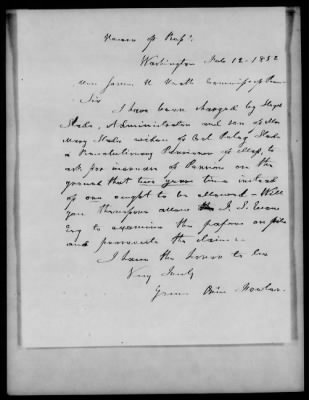 House of Rep^s.
Washington Feb 12. 1852
Hon James H. Heath Commiss. of Pen
Sir
I have been charged by
Slade, Administrator and son of
Mary Slade widow of Capt Peleg Slade
a Revolutionary Pensioner of Mass, to
ask for increase of Pension on the
ground that two years time instead
of one ought to be allowed - Will
you therefore allow J. J.
Esq to examine the papers on file
and prosecute the claim.
I have the honor to be
Very truly
Yours